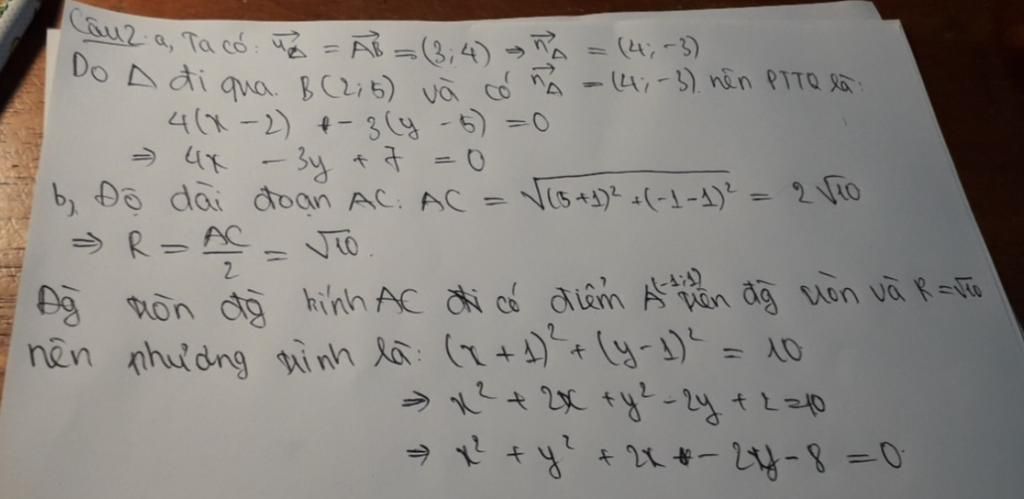 Câu 2: a, Ta có: u⃗Δ = AB⃗ = (3; 4) ⇒ n⃗Δ = (4; -3)
Do Δ đi qua B(2; 5) và có n⃗Δ = (4; -3) nên PTTQ là:
4(x - 2) + -3(y - 5) = 0
⇒ 4x - 3y + 7 = 0
b, Độ dài đoạn AC: AC = √((5+1)² + (-1-1)²) = 2√10
⇒ R = AC/2 = √10.
Đg̀ tròn đg̀ kính AC có điểm A(-1; 1) trên đg̀ tròn và R = √10
nên phương trình là: (x + 1)² + (y - 1)² = 10
⇒ x² + 2x + y² - 2y + 2 = 10
⇒ x² + y² + 2x - 2y - 8 = 0.